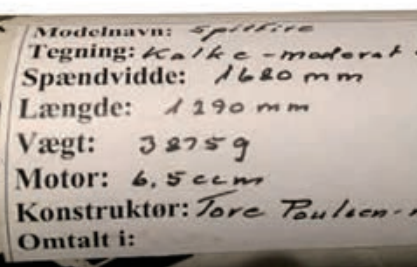 Modelnavn: Spitfire
Tegning: Kalke-moderat
Spændvidde: 1680 mm
Længde: 1290 mm
Vægt: 3875 g
Motor: 6,5 ccm
Konstruktør: Tore Paulsen-
Omtalt i: